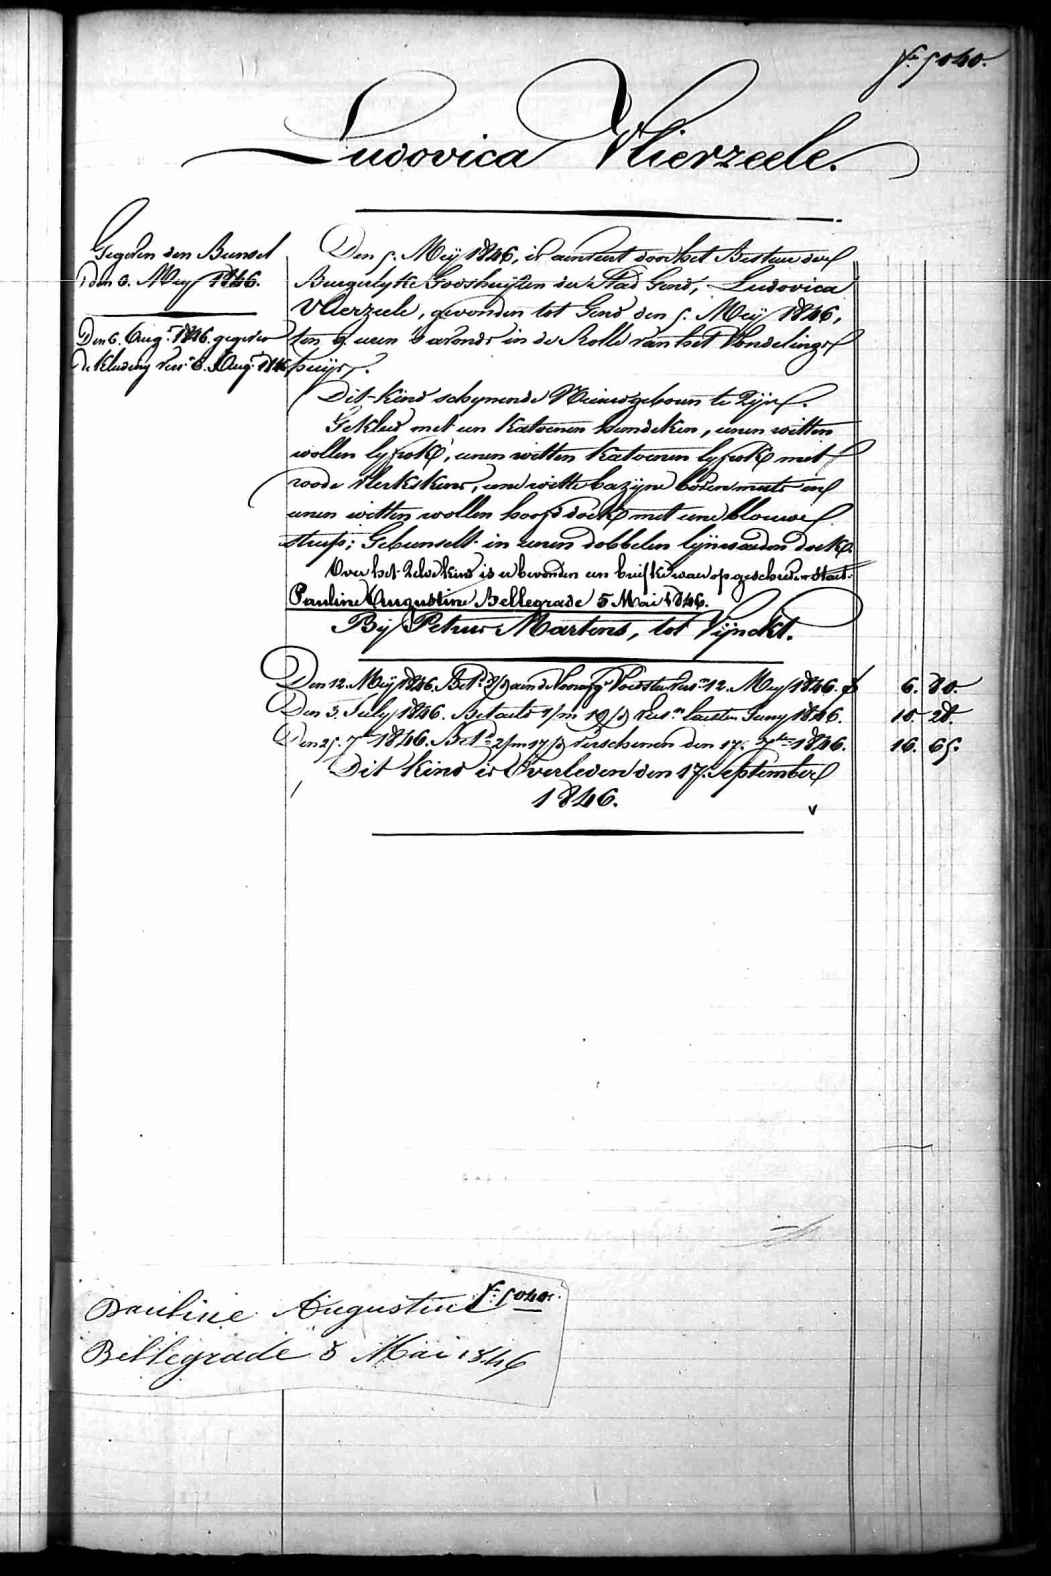 fº 5040.
Ludovica Vlierzeele.
Gegeven den Bunsel
den 6. Mey 1846.
Den 6. Aug. 1846. gegeven
de Kleeding vers. 6. Aug. 1846
Den 5. Meÿ 1846, is aenveert door het Bestuer der
Burgerlyke Godshuÿzen der Stad Gend, Ludovica
Vlierzeele, gevonden tot Gend den 5. Meÿ 1846,
ten 9 uren 's avonds in de Rolle van het Vondelings
huÿs.
Dit kind schynende Nieuwgeboren te Zÿn.
Gekleed met een katoenen hemdeken, eenen witten
wollen lyfrok, eenen witten katoenen lyfrok met
roode vlekskens, eene witte bazÿne bovenmuts en
eenen witten wollen hoofddoek met eene blauwe
streep; Gebunselt in eenen dobbelen lÿnwaeden doek.
Over het zelve kind is er bevonden een briefke waer op geschreven staet
Pauline Augustine Bellegrade 5 Mai 1846.
Bÿ Petrus Martens, tot Vÿnckt.
Den 12. Meÿ 1846. Bet.d aen de Voorige Voedster vers.n 12. Meÿ 1846. 6. 80.
Den 3. July 1846. Betaelt 1/m 19/d vers.n laesten Juny 1846. 10. 28.
Den 25. 7ber 1846. Bet.d 2/m 17/d verschenen den 17. 7ber 1846. 16. 65.
Dit kind is Overleden den 17. September
1846.
fº 5040.
Pauline Augustine
Bellegrade 5 Mai 1846